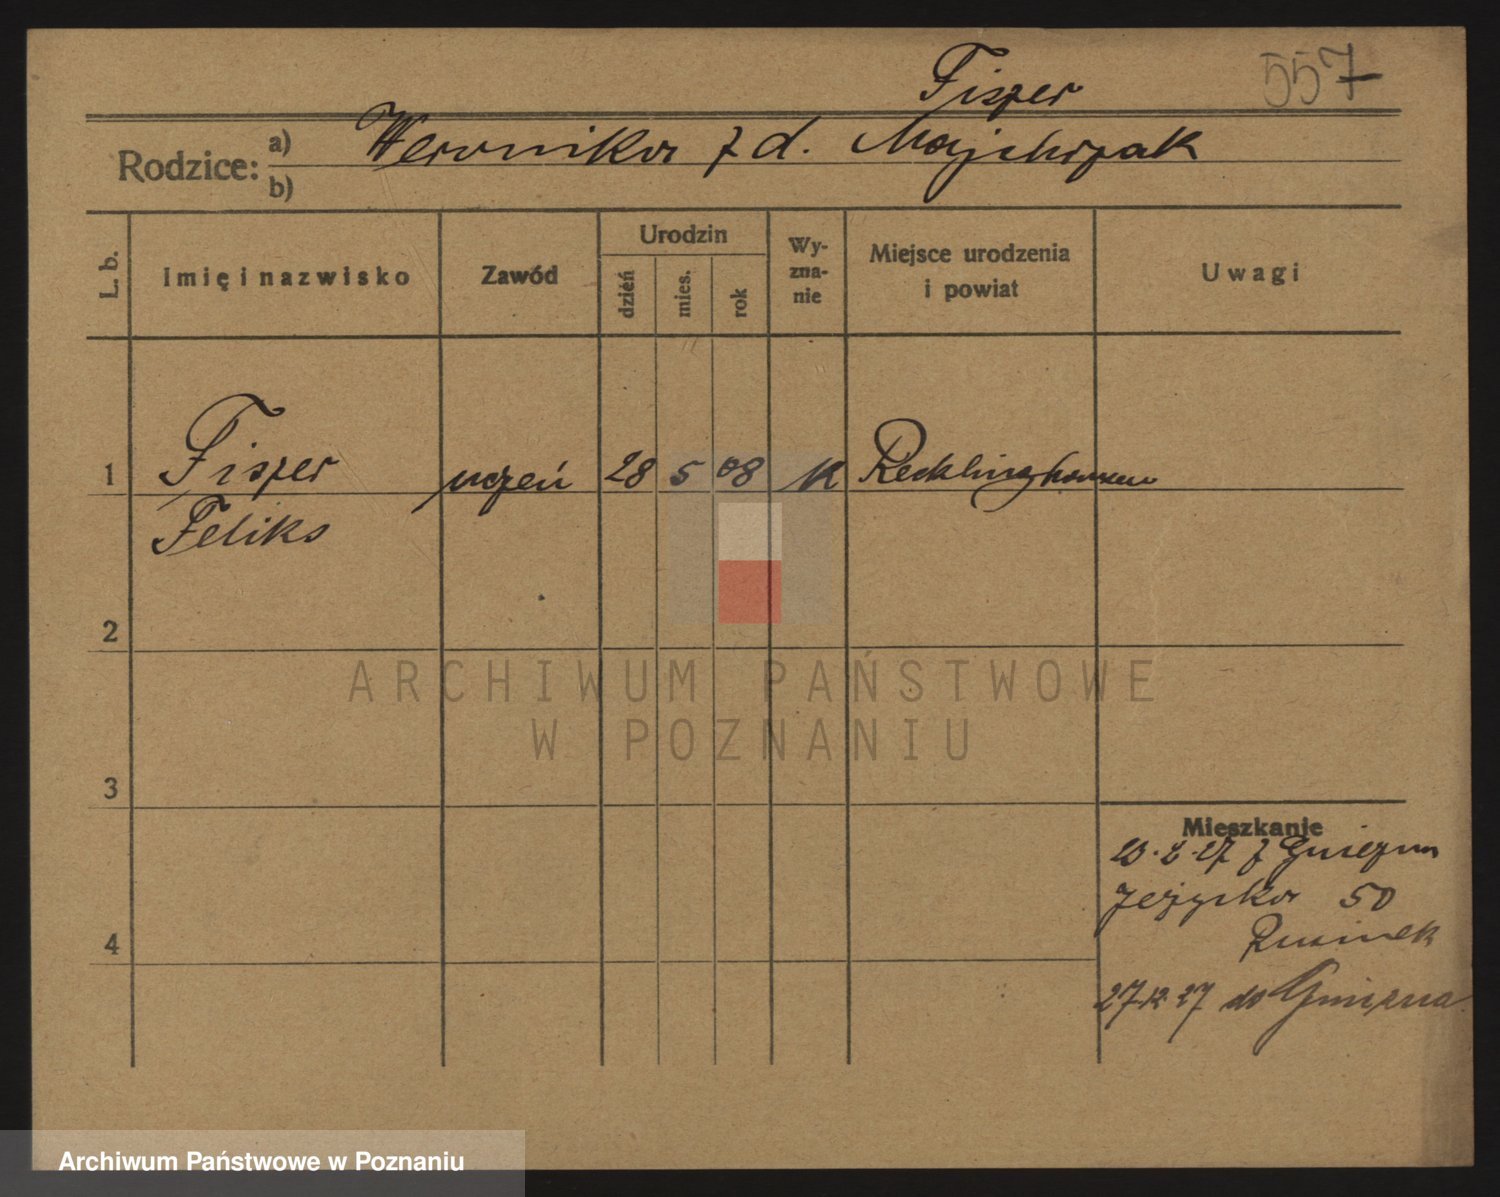 557
Fiszer
Rodzice:
a) Weronika z d. Majchrzak
b)
L. b.
Imię i nazwisko
Zawód
Urodzin
dzień
mies.
rok
Wy-
zna-
nie
Miejsce urodzenia
i powiat
Uwagi
1 Fiszer uczeń 28 5 08 K Recklinghausen
Feliks
2
3
4
ARCHIWUM PAŃSTWOWE
W POZNANIU
Mieszkanie
27 z Gniezna
50
27 12 27 do Gniezna
Archiwum Państwowe w Poznaniu